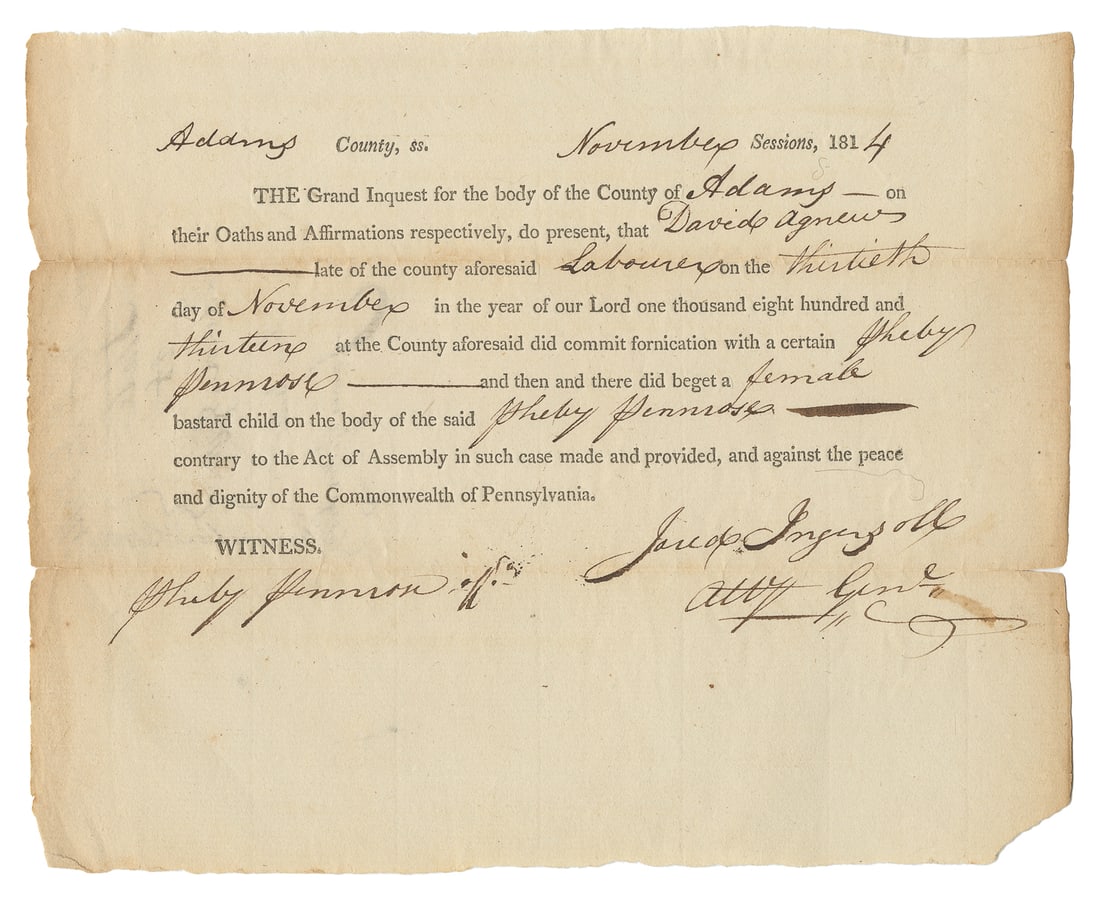 Addams County, ss. November Sessions, 1814
THE Grand Inquest for the body of the County of Adams — on
their Oaths and Affirmations respectively, do present, that David Agnew
——— late of the county aforesaid Labourer on the thirtieth
day of November in the year of our Lord one thousand eight hundred and
thirteen at the County aforesaid did commit fornication with a certain Pheby
Pennrose ——— and then and there did beget a female
bastard child on the body of the said Pheby Pennrose ———
contrary to the Act of Assembly in such case made and provided, and against the peace
and dignity of the Commonwealth of Pennsylvania.
WITNESS.
Jared Ingersoll
Pheby Pennrose
Atty Genl